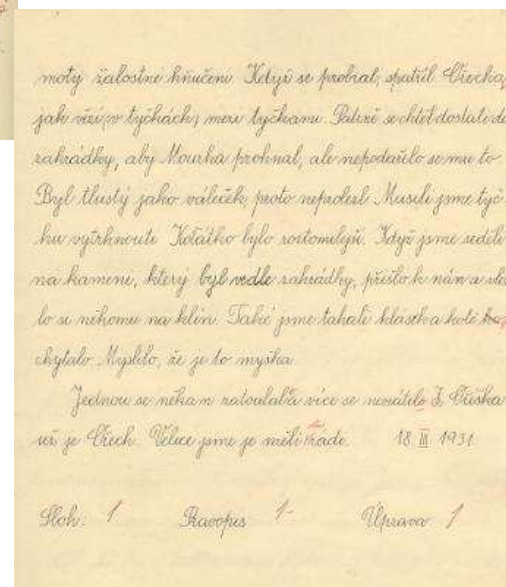 moty žalostné kňučení Když se probral, spatřil Ořecha,
jak vězí, v tyčkách, mezi tyčkami. Patrně se chtěl dostati do
zahrádky, aby Mourka prohnal, ale nepodařilo se mu to
Byl tlustý jako váleček, proto neprolezl Musili jsme tyč
ku vytrhnouti Koťátko bylo roztomilejší. Když jsme seděli
na kameni, který byl vedle zahrádky, přišlo k nám a vle
lo si někomu na klín. Také jsme tahali klásek a kotě ho
chytalo Myslilo, že je to myška
Jednou se někam zatoulala více se nevrátilo Z Oříška
už je Ořech. Velice jsme je měli rádi. 18 III 1931
Sloh: 1 Pravopis 1- Úprava 1